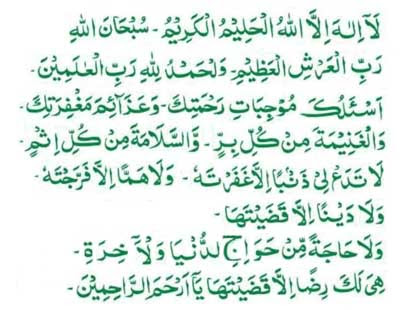 لَآ اِلٰهَ اِلَّا اللهُ الْحَلِيْمُ الْكَرِيْمُ - سُبْحَانَ اللهِ
رَبِّ الْعَرْشِ الْعَظِيْمِ - وَلْحَمْدُ لِلّٰهِ رَبِّ الْعٰلَمِيْنَ -
اَسْئَلُكَ مُوْجِبَاتِ رَحْمَتِكَ - وَعَزَآئِمَ مَغْفِرَتِكَ -
وَالْغَنِيْمَةَ مِنْ كُلِّ بِرٍّ - وَّالسَّلَامَةَ مِنْ كُلِّ اِثْمٍ -
لَا تَدَعْ لِىْ ذَنْبًا اِلَّا غَفَرْتَهٗ - وَلَا هَمًّا اِلَّا فَرَّجْتَهٗ -
وَلَا دَيْنًا اِلَّا قَضَيْتَهَا -
وَلَا حَاجَةً مِّنْ حَوَآئِجِ لدُّنْيَا وَلْاٰ خِرَةِ -
هِىَ لَكَ رِضًا اِلَّا قَضَيْتَهَا يَآ اَرْحَمَ الرَّاحِمِيْنَ -